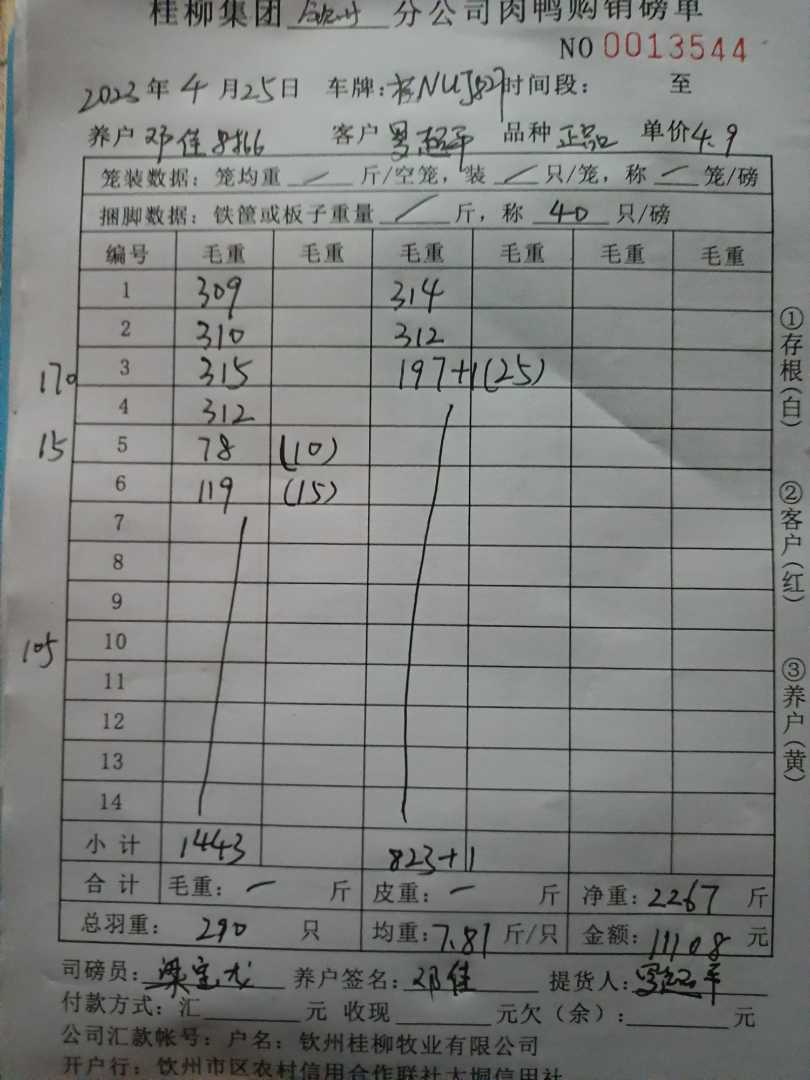 桂柳集团 钦州 分公司肉鸭购销磅单
NO 0013544
2023年4月25日 车牌:桂NUJ827 时间段: 至
养户 邓佳 客户 罗超平 品种 正品 单价4.9
笼装数据:笼均重 / 斤/空笼,装 / 只/笼,称 / 笼/磅
捆脚数据:铁筐或板子重量 / 斤,称 40 只/磅
编号 毛重 毛重 毛重 毛重 毛重 毛重
1 309 314
2 310 312
170 3 315 197+1(25)
4 312
15 5 78 (10)
6 119 (15)
7
8
9
105 10
11
12
13
14
小计 1443 823+1
合计 毛重: 一 斤 皮重: 一 斤 净重:2267 斤
总羽重: 290 只 均重:7.81 斤/只 金额:11108 元
司磅员:梁宝龙 养户签名:邓佳 提货人:罗超平
付款方式:汇 元 收现 元欠(余): 元
公司汇款帐号:户名:钦州桂柳牧业有限公司
开户行:钦州市区农村信用合作联社大垌信用社
①存根(白)
②客户(红)
③养户(黄)